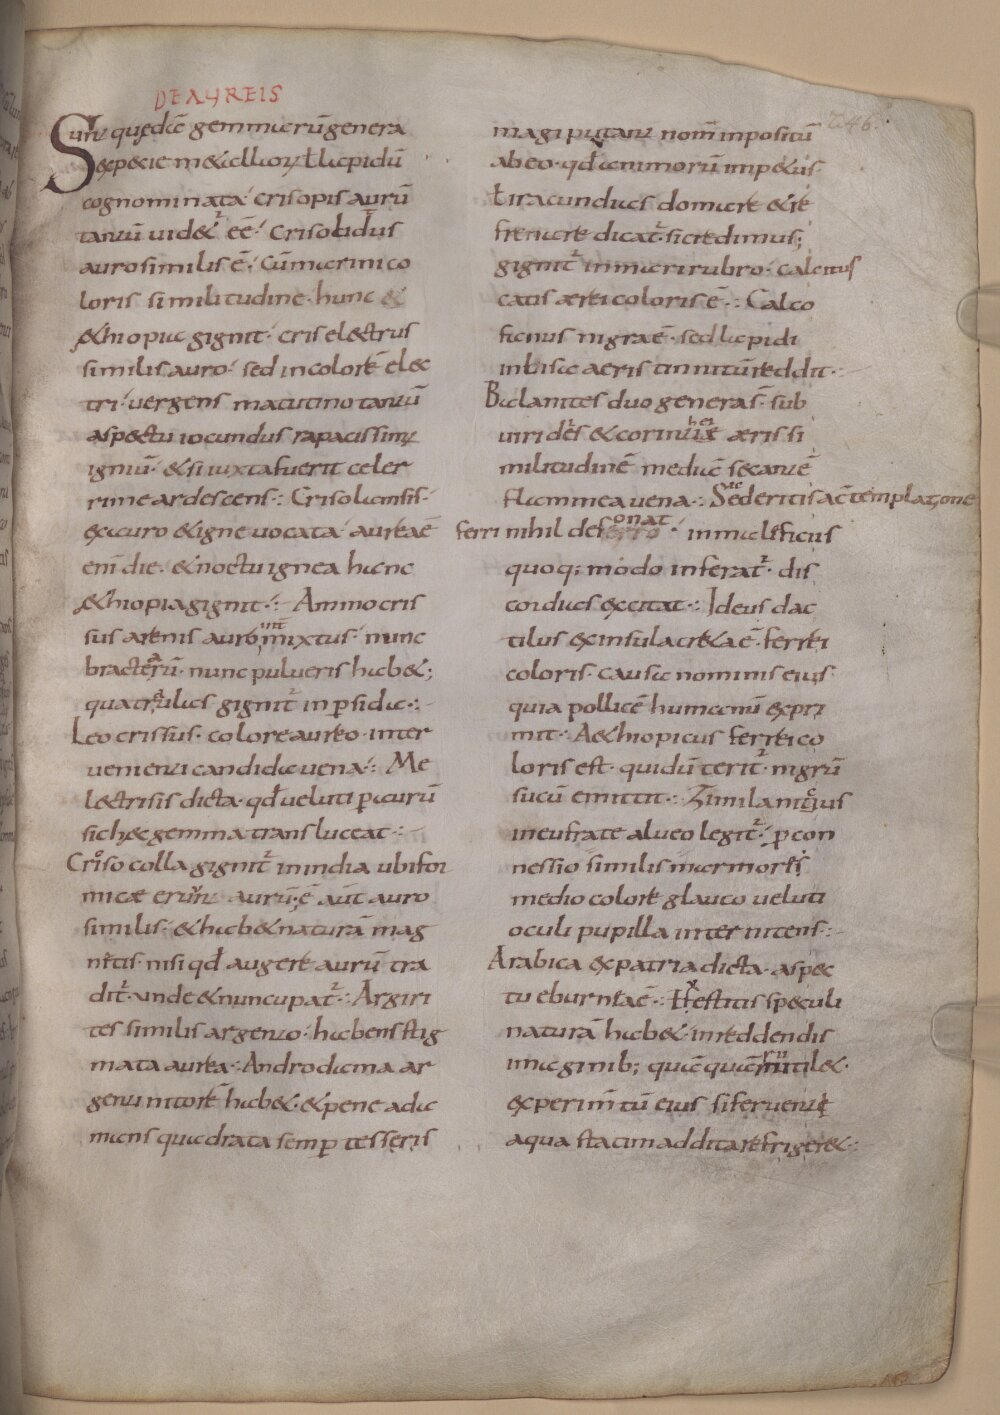 DE AUREIS
Sunt quędā gemmarū genera
ex specie metallorū ł lapidū
cognominata· crisopis aurū
tantū uidet̄ eē· Crisolidus
auro similis ē· cū marini co
loris similitudine· hunc &
&hiopia gignit· criselectrus
similis auro· sed in colorē elec
tri· uergens matutino tantū
aspectu iocundus rapacissimę
igniū· & si iuxta fuerit celer
rime ardescens·: Crisolansis·
ex auro & igne uocata· aurea ē
eni die· & noctu ignea hanc
&hiopia gignit·:· Ammocris
sus arenis auro int mixtus· nunc
bracterū· nunc pulueris hab&;
quatrulas gignit̄ in psida·:·
Leocrissus· colore aureo· inter
uenienti candida uena·: Me
lectrisis dicta· qđ ueluti p aurū
sic h&c gemma transluceat·:·
Crisocolla gignit̄ in india ubi for
micæ erunt aurū; ē aūt auro
similis· & hab& naturā mag
n&is· nisi qđ augere aurū tra
dit̄· unde & nuncupat̄·: Argiri
tes similis argento· habens stig
mata aurea·: Androdama ar
genti nitorē hab&· & pene ada
mans quadrata semp tesseris
246
magi putant nom̄ inpositū
ab eo· qđ animorū imp&us·
ł iracundias domare & re
frenare dicat̄· si credimus;
gignit̄ in mari rubro· calcitus
catis ærei coloris ē·: Calco
fanus nigra ē· sed lapidi
inlisa aeris tinnitū reddit·:
Balanites duo genera s̄· sub
uirides & corinthei æris si
militudinē mediā secante
flammea uena·: Sederitis ac̄templatione
ferri nihil dessonat· in maleficus
quoq; modo inferat̄· dis
cordias excitat·: Ideus dac
tilus ex insula creta ē· ferrei
coloris· causa nominis eius·
quia pollicē humanū expri
mit· A&hiopicus ferrei co
loris est· qui dū terit̄· nigrū
sucū emittit·: Zimilanitus
in eufrate alueo legit̄· p con
nessio similis marmoris
medio colore glauco ueluti
oculi pupilla internitens·:
Arabica ex patria dicta· aspec
tu eburnea ē·: Hexestitis speculi
naturā hab&· in reddendis
imaginib; quāquā rutil&·
experimtū eius· si feruenti
aqua statim addita refriger&·: